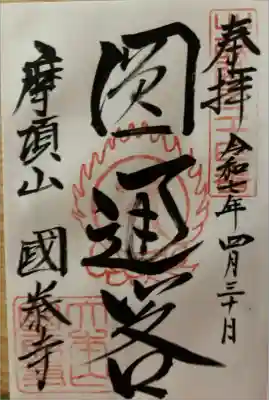 奉拝
令和七年四月三十日
圓通閣
摩頂山 國泰寺